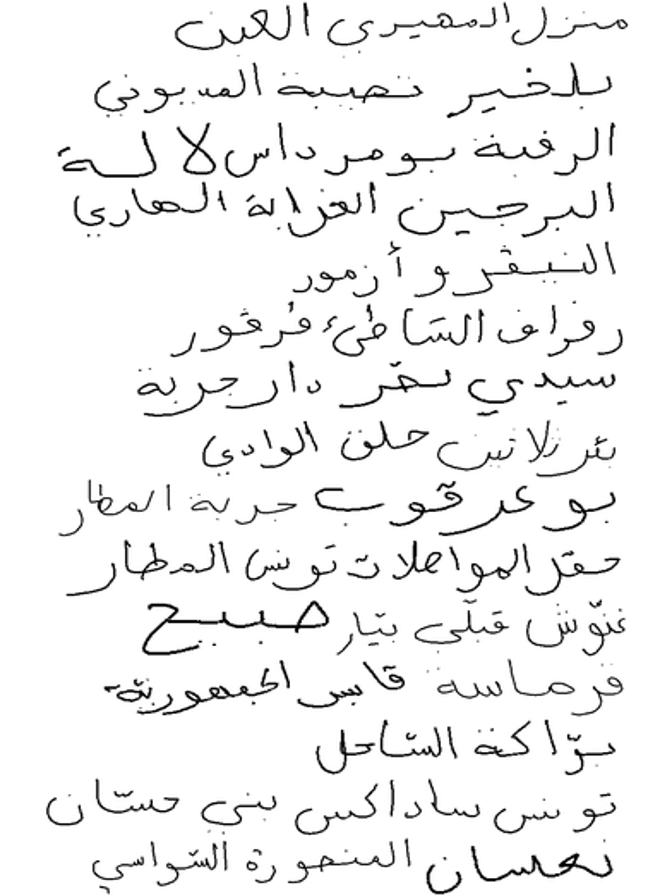 منزل المهيري العين
بلخير نصبة المديوني
الرقبة بومرداس لالة
البرجين الغرابة الصاري
النيفرو أزمور
رفراف الشاطئ فرفور
سيدي نصر دار جربة
بئر زلاتين حلق الوادي
بو عرقوب جربة المطار
حقل المواصلات تونس المطار
غنّوش قبلّي بيّار صبيح
فرماسة قابس الجمهوريّة
بوّاكنة السّاحل
تونس ساداكس بني حسّان
نعسان المنصورة الشواسي